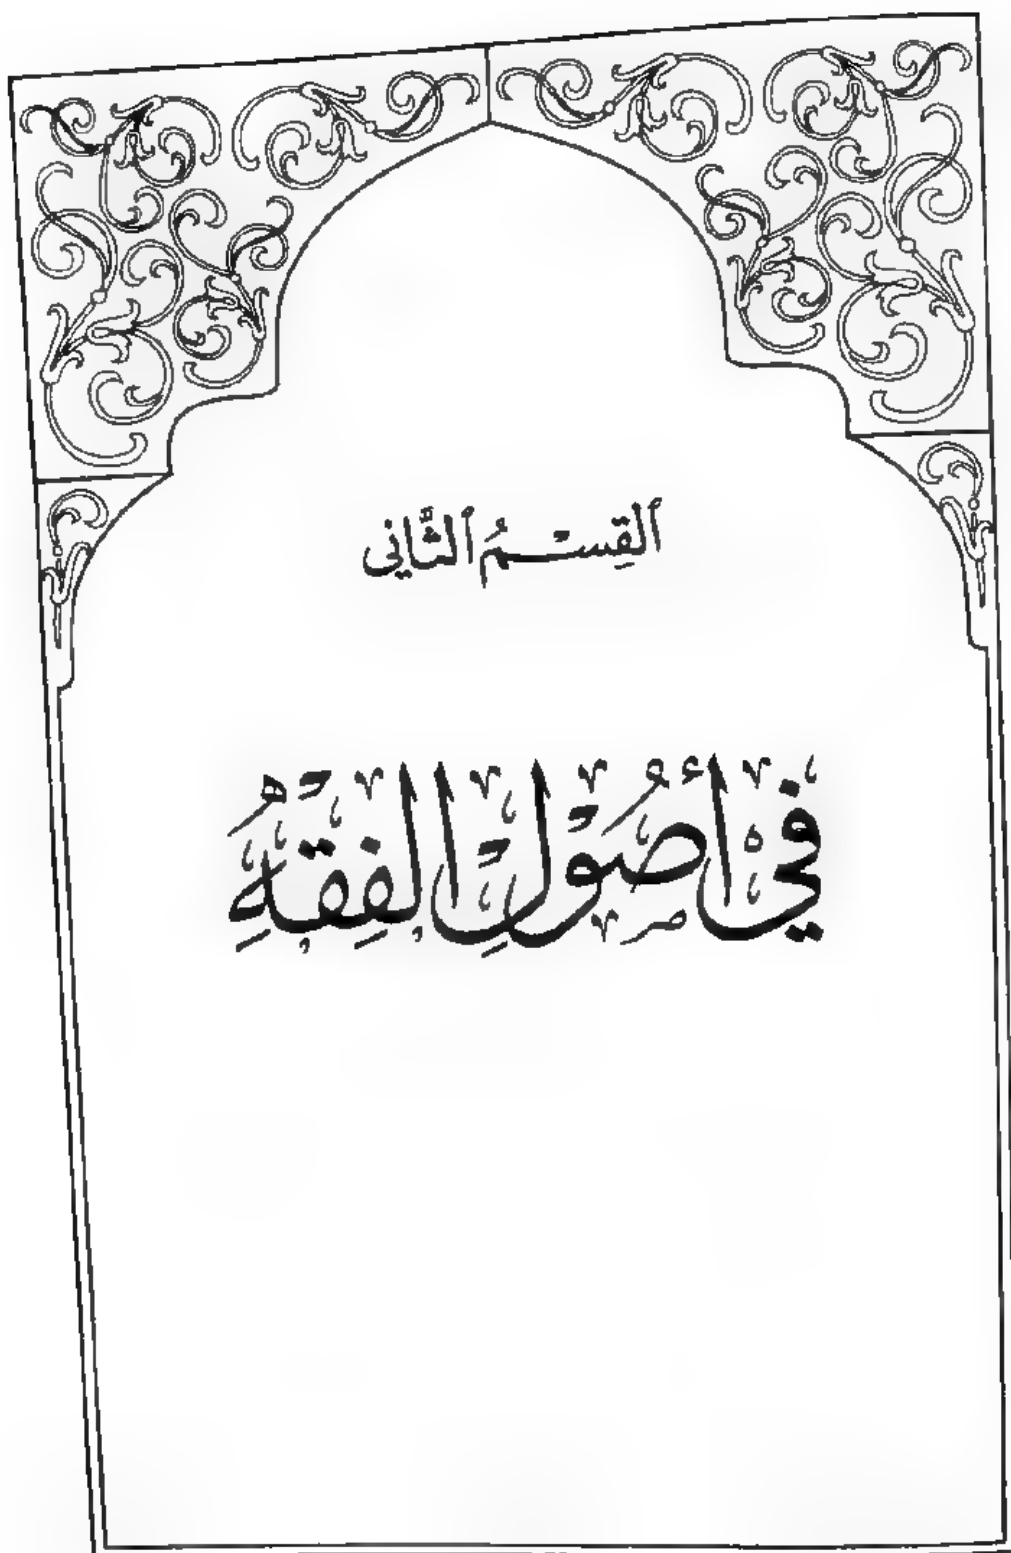 ٱلقِسْمُ ٱلثَّانِي
فِي أُصُولِ الْفِقْهِ